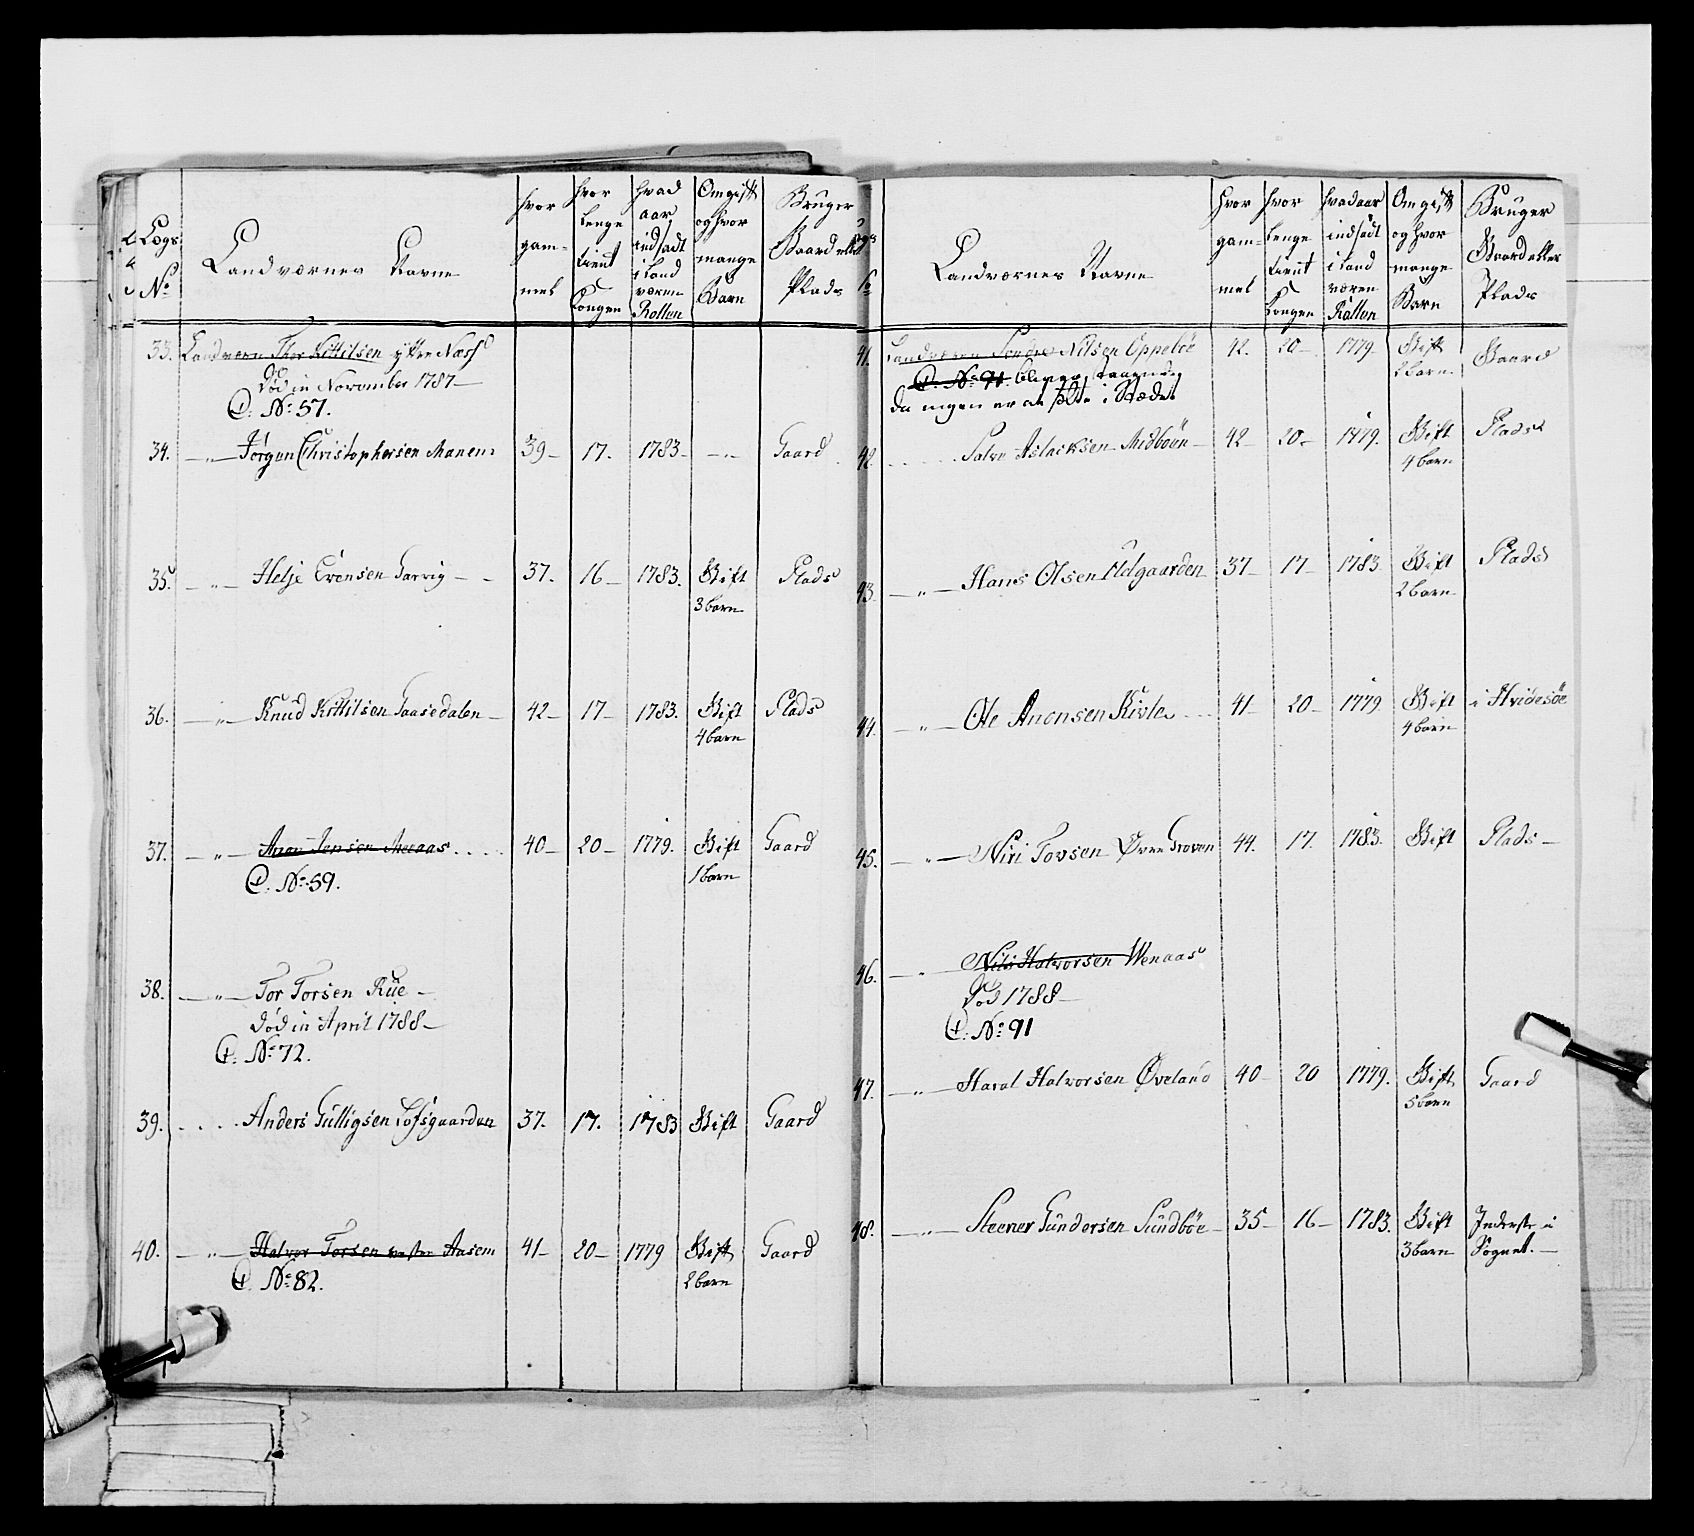 Lægs No
Landværnes Navne
hvor gam- mel
hvor lenge tient Kongen
hvad aar indsadt i Land væren Rollen
Om gift og hvor mange Barn
Bruger Gaard eller Plads
33. Landværn Thor Kittilsen ytter Næss
Död in November 1787
C. No 57.
34. —"— Jörgen Christophersen Manem 39 17. 1783 —"— Gaard
35. —"— Helje Evensen Garvig 37. 16 1783. Gift Plads
3 barn
36. —"— Knud Kittilsen Gaasedalen 42 17 1783. Gift Plads
4 barn
37. —"— Anon Jensen Meaas 40 20 1779. Gift Gaard
1 barn
C. No 59.
38. —"— Tor Torsen Rue
död in April 1788
C. No 72.
39. Anders Gulligsen Lofsgaarden 37. 17. 1783 Gift Gaard
40. —"— Halvor Torsen vester Aasem 41 20 1779 Gift Gaard
2 barn
C. No 82.
Landværnes Navne
hvor gam- mel
hvor lenge tient Kongen
hvad aar indsadt i Land væren Rollen
Om gift og hvor mange Barn
Bruger Gaard eller Plads
41. Landværn Sondre Nilsen Oppeböe 42. 20 1779 Gift Gaard
2 barn
C. No 91.
da ingen er at sette i Stædet
42. Salve Aslacksen Midböen 42 20 1779. Gift Plads
4 barn
43. —"— Hans Olsen Udgaarden 37 17 1783 Gift Plads
2 barn
44. —"— Ole Anonsen Kivle 41 20 1779 Gift i Hvidesöe
4 barn
45. —"— Niri Tovsen Øvre Groven 44. 17. 1783. Gift Plads
46. —"— Nils Halvorsen Wenaas
Död 1788
C. No 91
47. —"— Haral Halvorsen Øveland 40 20 1779. Gift Gaard
5 barn
48. —"— Steener Gundersen Sundböe 35 16 1783. Gift Inderste i
3 barn Sognet.